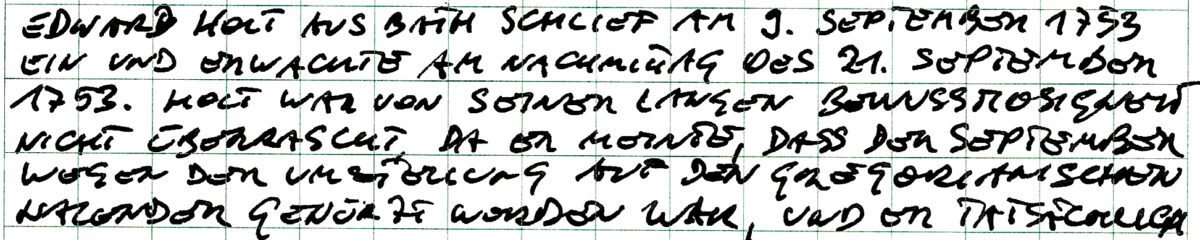 EDWARD HOLT AUS BATH SCHLIEF AM 9. SEPTEMBER 1753
EIN UND ERWACHTE AM NACHMITTAG DES 21. SEPTEMBER
1753. HOLT WAR VON SEINER LANGEN BEWUSSTLOSIGKEIT
NICHT ÜBERRASCHT, DA ER MEINTE, DASS DER SEPTEMBER
WEGEN DER UMSTELLUNG AUF DEN GREGORIANISCHEN
KALENDER GEKÜRZT WORDEN WAR, UND ER TATSÄCHLICH